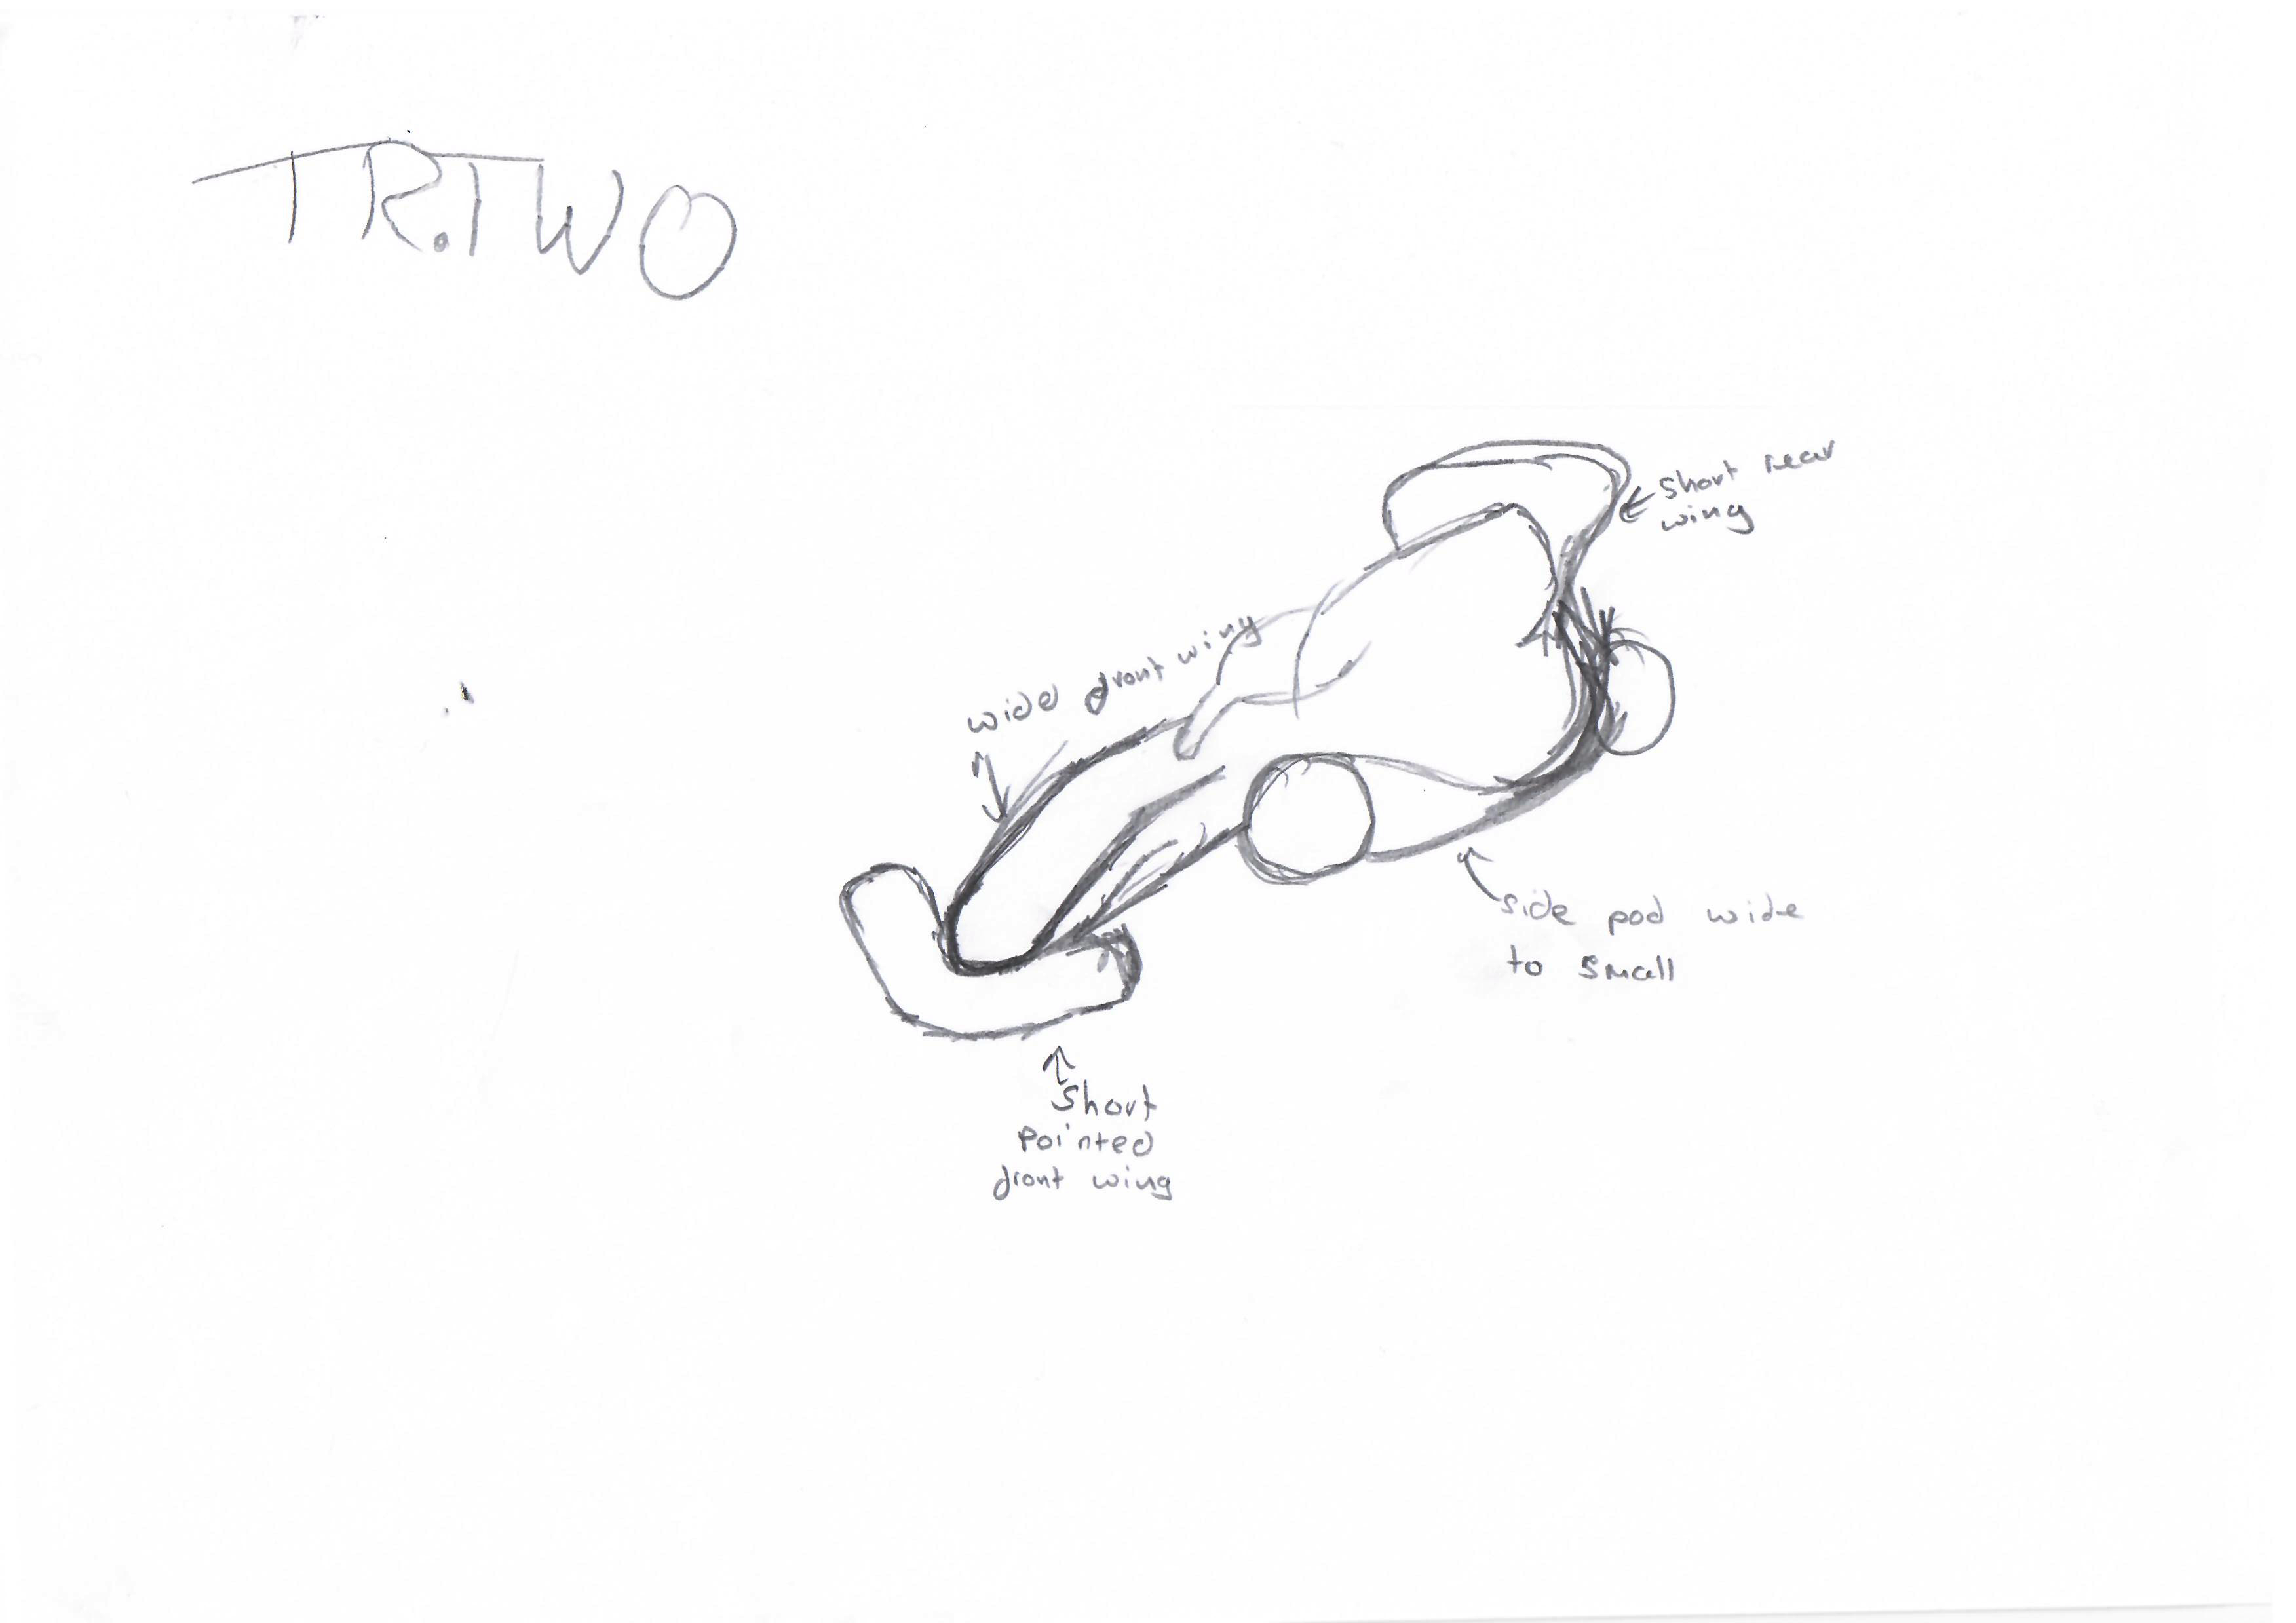 TR.TWO
short rear
wing
wide front wing
side pod wide
to small
short
pointed
front wing